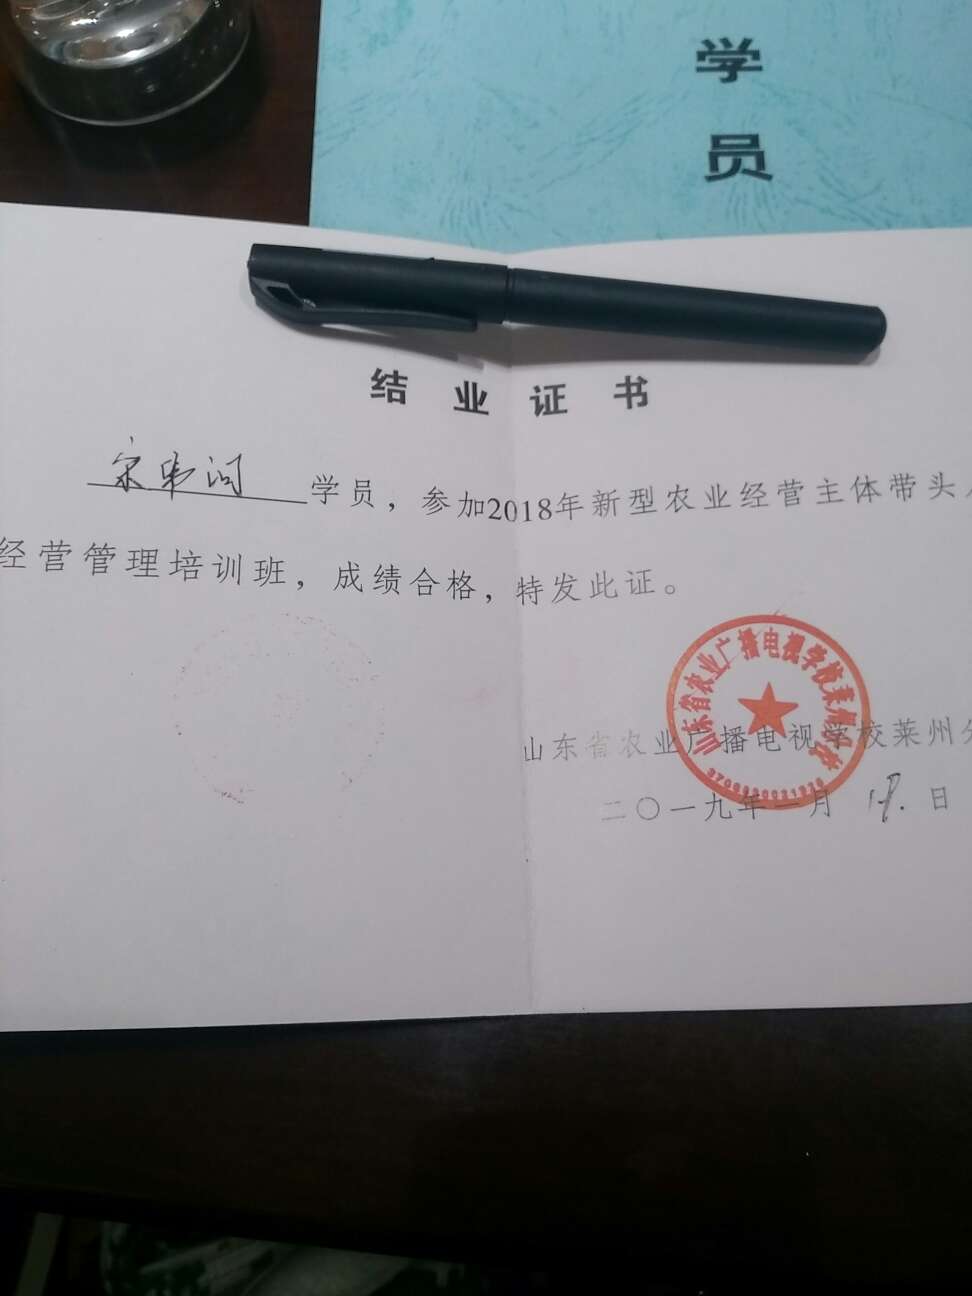 学
员
结业证书
学员，参加2018年新型农业经营主体带头
经营管理培训班，成绩合格，特发此证。
山东省农业广播电视学校莱州分校
山东省农业广播电视学校莱州
二〇一九年一月 日